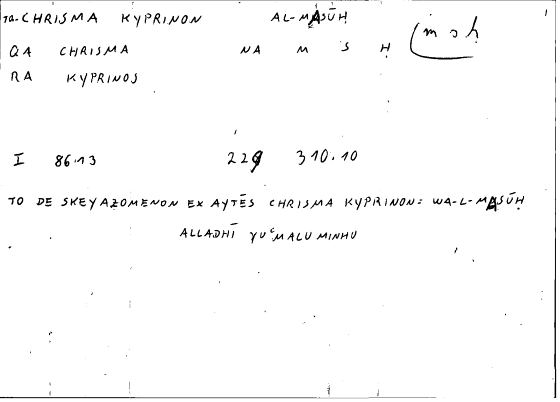 TO-CHRISMA KYPRINON AL-MASŪḤ
QA CHRISMA NA M S Ḥ (m s ḥ
RA KYPRINOS
I 86.13 229 310.10
TO DE SKEYAZOMENON EX AYTĒS CHRISMA KYPRINON: WA-L-MASŪḤ
ALLADHĪ YUʿMALU MINHU